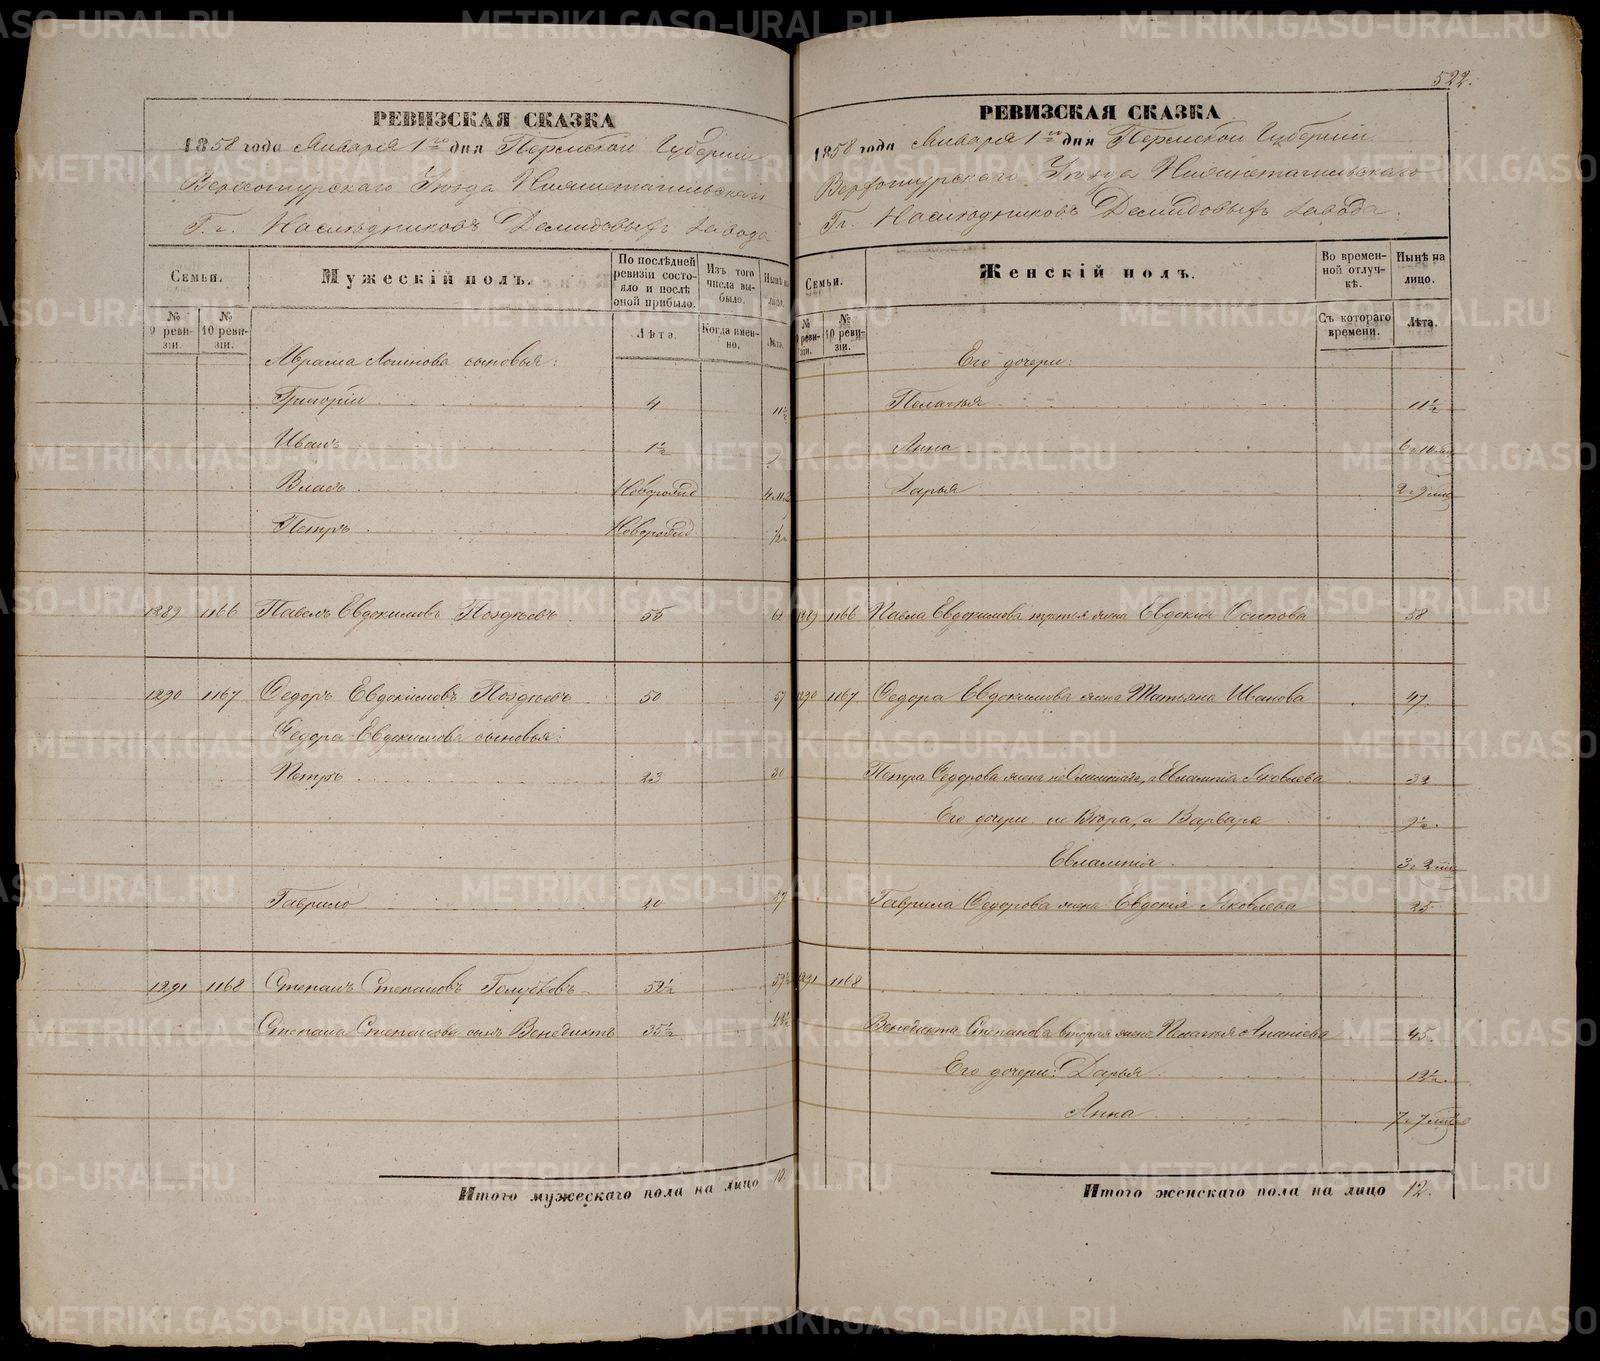 522.
РЕВИЗСКАЯ СКАЗКА
1858 года Января 1го дня Пермской Губерніи
Верхотурскаго Уѣзда Нижнетагильскаго
Г.г. Наслѣдниковъ Демидовыхъ завода
Семьи.
№ 9 ревизіи.
№ 10 ревизіи.
Мужескій полъ.
По послѣдней ревизіи состояло и послѣ оной прибыло.
Лѣта.
Изъ того числа выбыло.
Когда именно.
Нынѣ на лицо.
Лѣта.
Абрама Логинова сыновья:
Григорій 4 11½
Иванъ 1½
Власъ Новорожд
Петръ Новорожд
1289 1166 Павелъ Евдокимовъ Поздѣевъ 55 62
1290 1167 Федоръ Евдокимовъ Поздѣевъ 50 57
Федора Евдокимова сыновья:
Петръ 23 30
Гаврило 20 27
1291 1168 Степанъ Степановъ Голубковъ 52½ 59½
Степана Степанова сынъ Венедиктъ 35½ 42½
Итого мужескаго пола на лицо 10.
РЕВИЗСКАЯ СКАЗКА
1858 года Января 1го дня Пермской Губерніи
Верхотурскаго Уѣзда Нижнетагильскаго
Гг. Наслѣдниковъ Демидовыхъ завода.
Семьи.
№ 9 ревизіи.
№ 10 ревизіи.
Женскій полъ.
Во временной отлучкѣ.
Съ котораго времени.
Нынѣ на лицо.
Лѣта.
Его дочери:
Пелагѣя 11½
Анна
Дарья
1289 1166 Павла Евдокимова третья жена Евдокія Осипова 58
1290 1167 Федора Евдокимова жена Татьяна Иванова 47.
Петра Федорова жена Евлампія Яковлева 32
Его дочери: не Вѣра, а Варвара 9½.
Евлампія
Гаврила Федорова жена Евдокія Яковлева 25
1291 1168
Венедикта Степанова вторая жена Пелагея Ананіева 45.
Его дочери: Дарья 12½.
Анна
Итого женскаго пола на лицо 12.
METRIKI.GASO-URAL.RU